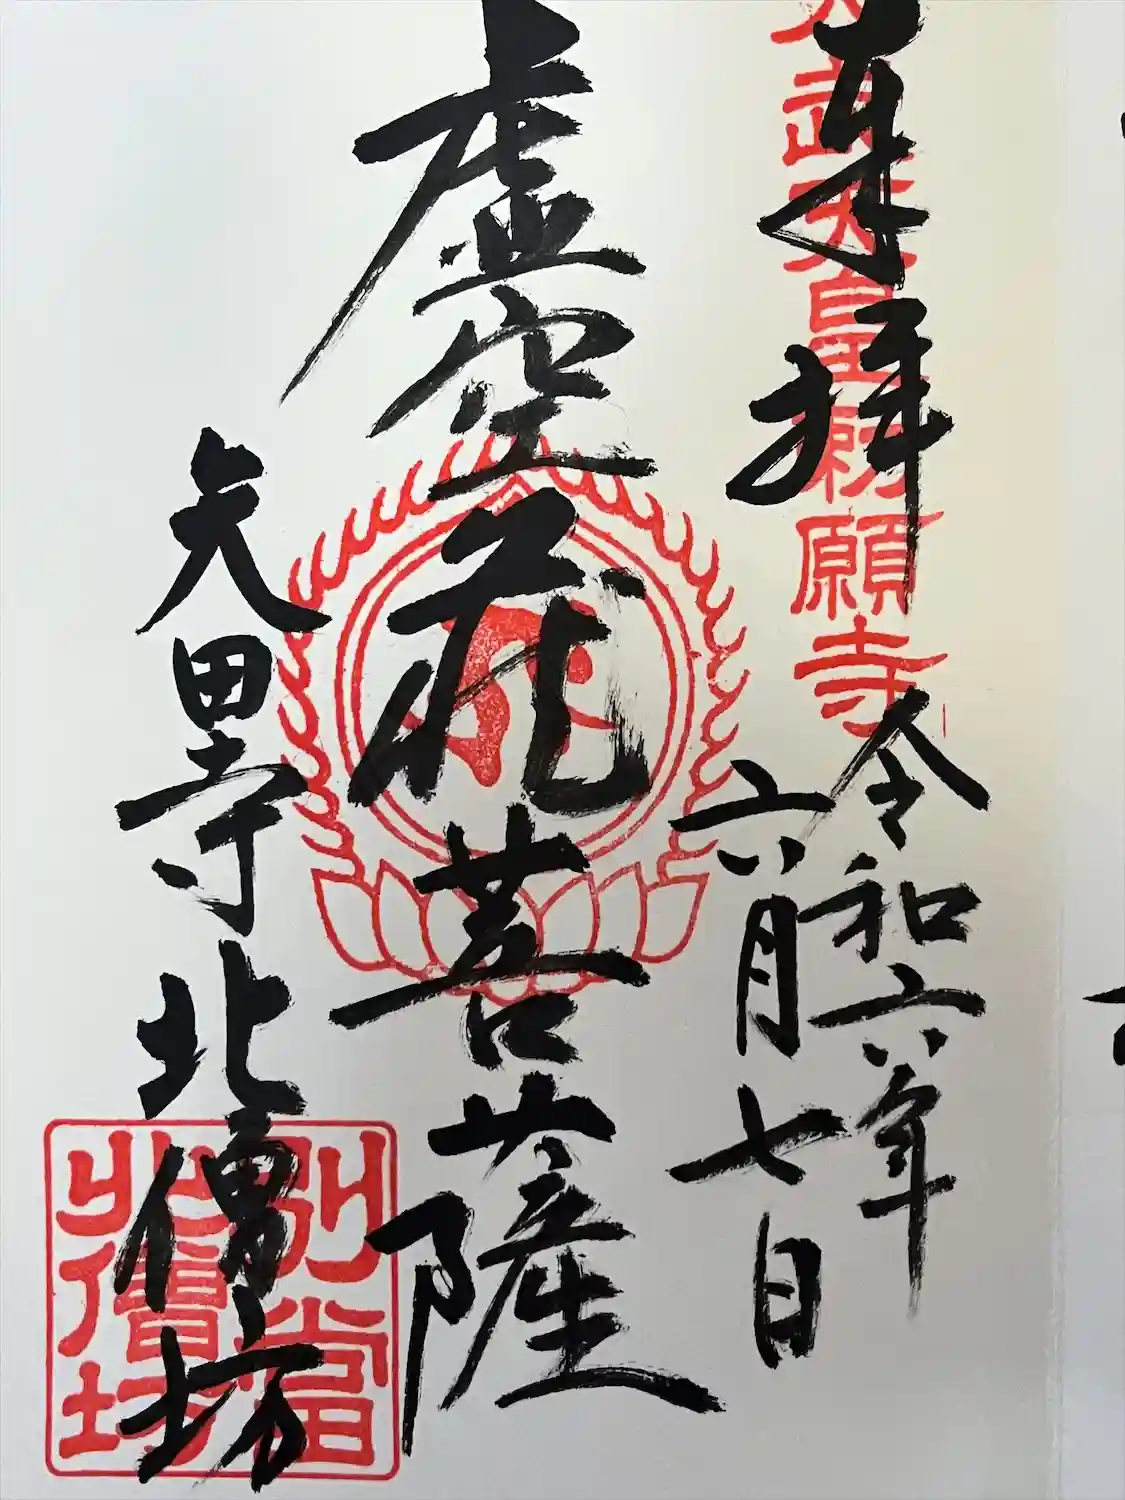 奉拝
天武天皇勅願寺
令和六年
六月七日
虚空蔵菩薩
矢田寺北僧坊
別當
北僧坊